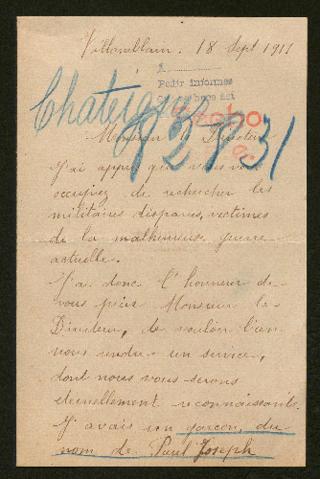 18 Sept 191
Pedir informes
Monsieur le Directeur
J'ai appris que vous vous
occupiez de rechercher les
militaires disparus, victimes
de la malheureuse guerre
actuelle.
J'ai donc l'honneur de
vous prier Monsieur le
Directeur, de vouloir bien
nous rendre un service,
dont nous vous serons
eternellement reconnaissants.
J'avais un garçon, du
nom de Paul Joseph